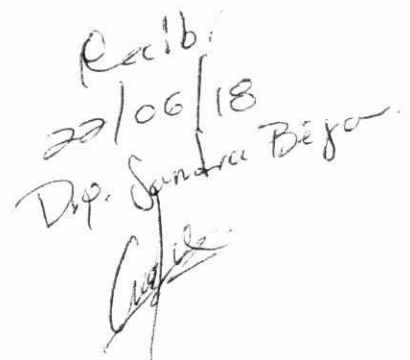 Recibí
22/06/18
Dip. Sandra Bejar